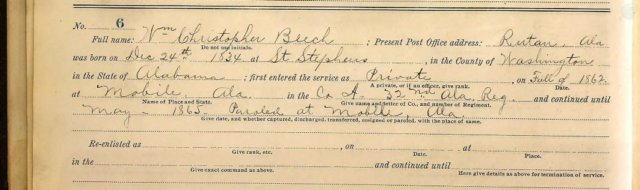 No. 6
Full name: Wm Christopher Beech ; Present Post Office address: Rutan, Ala
Do not use initials.
was born on Dec 24th 1834 at St Stephens , in the County of Washington
in the State of Alabama ; first entered the service as Private , on Fall of 1862
A private, or if an officer, give rank. Date.
at Mobile, Ala. in the Co A. 32nd Ala. Reg. and continued until
Name of Place and State. Give name and letter of Co., and number of Regiment.
May - 1865. Paroled at Mobile, Ala.
Give date, and whether captured, discharged, transferred, resigned or paroled, with the place of same.
Re-enlisted as , on , at
Give rank, etc. Date. Place.
in the and continued until
Give exact command as above. Here give details as above for termination of service.